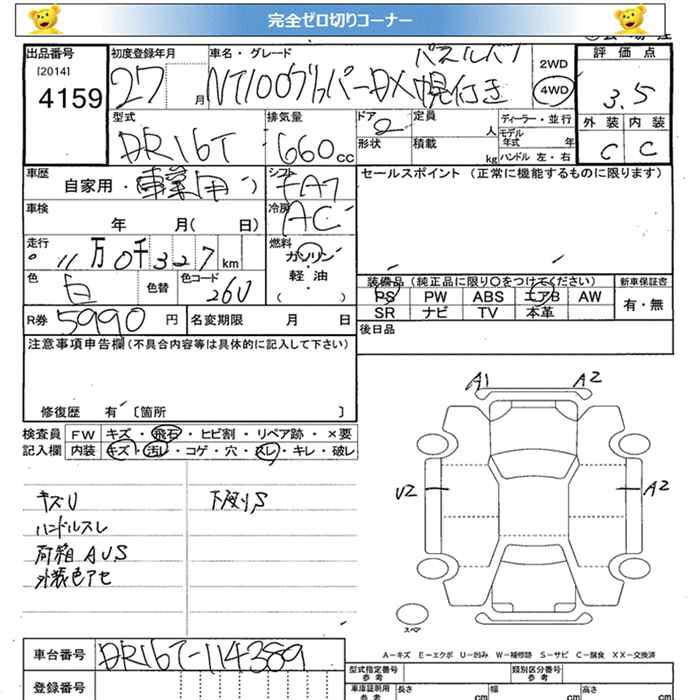 完全ゼロ切りコーナー
出品番号
[2014]
4159
初度登録年月
27 月
車名・グレード
NT100クリッパーDX幌付き
2WD
4WD
評価点
3.5
外装 内装
C C
型式
DR16T
排気量
660 cc
ドア
2
定員
人
形状
積載
kg
ディーラー・並行
モデル年式 年
ハンドル 左・右
車歴
自家用・事業用
シフト
FA7
車検
年 月( 日)
冷房
AC
走行
11万0千327 km
燃料
ガソリン
軽・油
( ・ )
色
白
色替
色コード
26U
セールスポイント (正常に機能するものに限ります)
装備品(純正品に限り○をつけてください)
PS PW ABS エアB AW
SR ナビ TV 本革
新車保証書
有・無
後日品
R券 5990 円
名変期限 月 日
注意事項申告欄(不具合内容等は具体的に記入して下さい)
修復歴 有 〔箇所 〕
検査員記入欄
FW キズ・飛石・ヒビ割・リペア跡・×要
内装 キズ・汚レ・コゲ・穴・スレ・キレ・破レ
キズU
ハンドルスレ
荷箱AUS
外装色アセ
下廻りS
A1 A2
U2 A2
スペア
A-キズ E-エクボ U-凹み W-補修跡 S-サビ C-腐食 XX-交換済
車台番号 DR16T-114389
登録番号
型式指定番号
参考
類別区分番号
参考
車庫証明用
参考
長さ cm
幅 cm
高さ cm